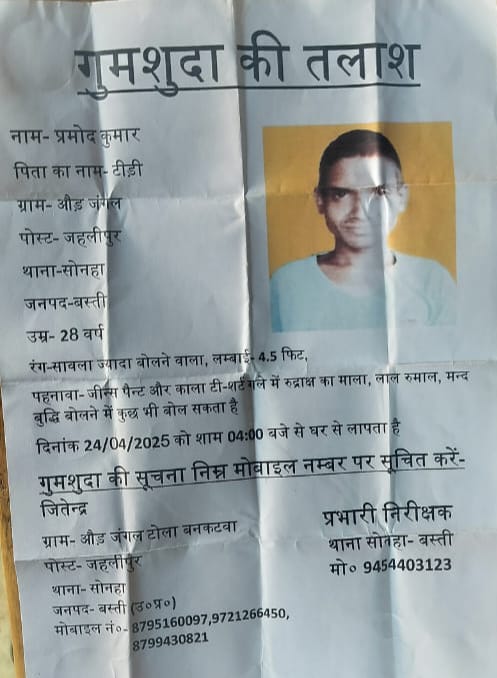 गुमशुदा की तलाश
नाम- प्रमोद कुमार
पिता का नाम- टीड़ी
ग्राम- औड़ जंगल
पोस्ट- जहलीपुर
थाना-सोनहा
जनपद-बस्ती
उम्र- 28 वर्ष
रंग-सावला ज्यादा बोलने वाला, लम्बाई- 4.5 फिट,
पहनावा- जीन्स पैन्ट और काला टी-शर्ट गले में रुद्राक्ष का माला, लाल रुमाल, मन्द
बुद्धि बोलने में कुछ भी बोल सकता है
दिनांक 24/04/2025 को शाम 04:00 बजे से घर से लापता है
गुमशुदा की सूचना निम्न मोबाइल नम्बर पर सूचित करें-
जितेन्द्र
ग्राम- औड़ जंगल टोला बनकटवा
पोस्ट- जहलीपुर
थाना- सोनहा
जनपद- बस्ती (उ०प्र०)
मोबाइल नं०- 8795160097,9721266450,
8799430821
प्रभारी निरीक्षक
थाना सोनहा- बस्ती
मो० 9454403123